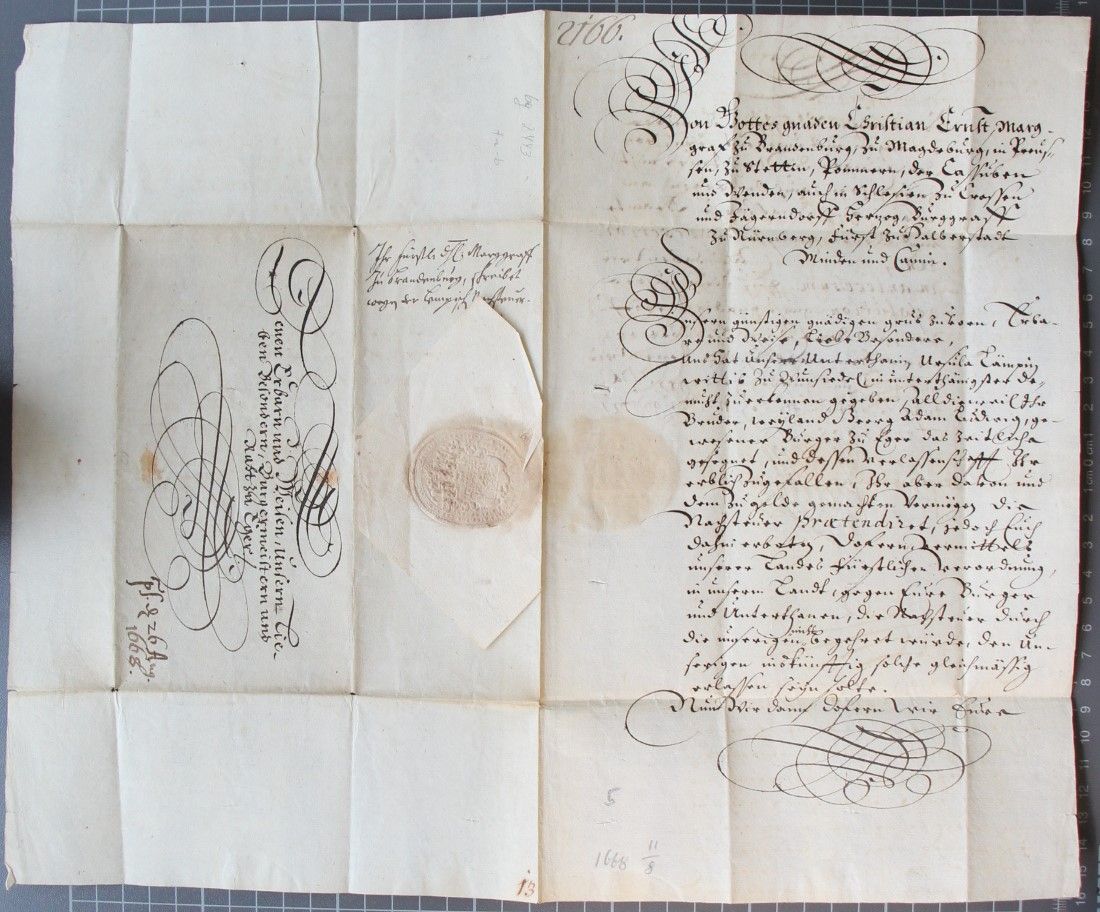 2166.
Von Gottes gnaden Christian Ernst, Marg-
graf zu Brandenburg, zu Magdeburg, in Preus-
sen, zu Stettin, Pommern, der Cassuben
und Wenden, auch in Schlesien zu Crossen
und Jägerndorff Herzog, Burggraff
zu Nürnberg, Fürst zu Halberstadt
Minden und Camin.
Unsern günstigen gnädigen grus zuvorn, Erba-
re und Weise, Liebe Besondere,
Uns hat Unsere Unterthanin Ursula Lämpin
wittib zu Wunsiedel, in unterthänigster de-
muht zuerkennen gegeben, alldieweil Ihr
Bruder, weyland Georg Adam Ludwig, ge-
wesener Burger zu Eger das zeitliche
gesegnet, und dessen verlassenschafft Ihr
erblich zugefallen, Ihr aber davon und
dem zu gelde gemachten Vermögen die
Nachsteuer prætendiret, jedoch Euch
dahin erboten, dafern, vermittels
unserer Landes Fürstlichen verordnung,
in unserm Landt, gegen Eure Burger
und Unterthanen, die Nachsteuer durch
die unserigen nicht begehret würde, den Un-
serigen inskünfftig solche gleichmässig
erlassen seyn solte.
Nun Wir dann dafern Wir Eure
5
1668 11/8
13
Ihr fürstl. dhl. Marggraff
zu Brandenburg, schreibet
wegen der Lempin Nachsteuer.
Denen Erbarn und Weisen, Unsern Lie-
ben Besondern, Burgermeistern und
Raht zu Eger.
26 Aug.
1668.